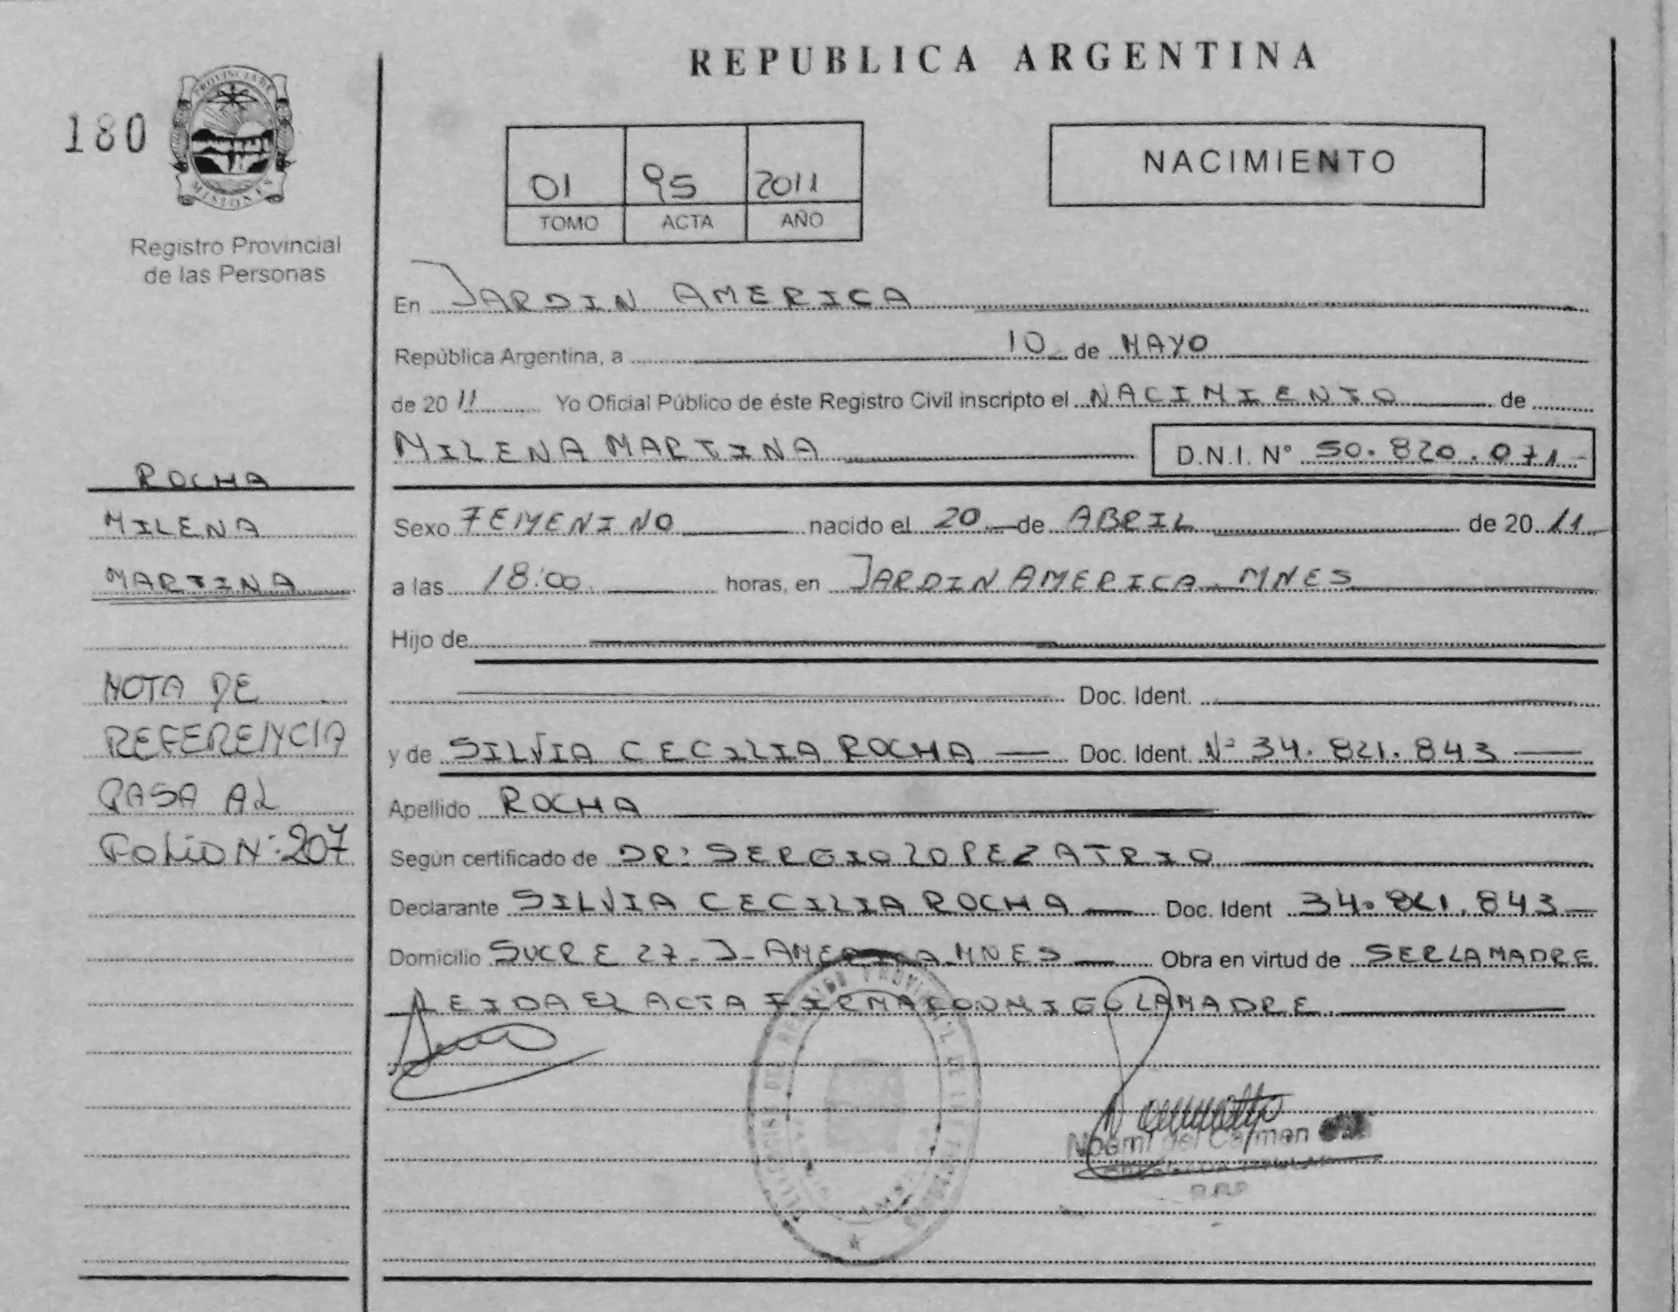 REPUBLICA ARGENTINA
180
PROVINCIA DE
MISIONES
Registro Provincial
de las Personas
01 95 2011
TOMO ACTA AÑO
NACIMIENTO
En JARDIN AMERICA
República Argentina, a 10 de MAYO
de 2011 Yo Oficial Público de éste Registro Civil inscripto el NACIMIENTO de
MILENA MARTINA D.N.I. N° 50.820.071
Sexo FEMENINO nacido el 20 de ABRIL de 2011
a las 18:00 horas, en JARDIN AMERICA - MNES
Hijo de
Doc. Ident.
y de SILVIA CECILIA ROCHA Doc. Ident. Nº 34.821.843
Apellido ROCHA
Según certificado de DR: SERGIO LOPEZ ATRIO
Declarante SILVIA CECILIA ROCHA Doc. Ident 34.821.843
Domicilio SUCRE 27 - J - AMERICA MNES Obra en virtud de SER LA MADRE
LEIDA EL ACTA FIRMA CONMIGO LA MADRE
Noemi del Carmen
ROCHA
MILENA
MARTINA
NOTA DE
REFERENCIA
PASA AL
FOLIO N: 207